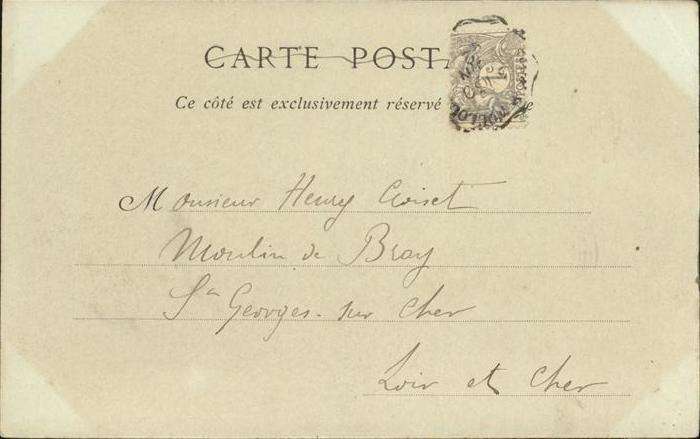 CARTE POSTA
Ce côté est exclusivement réservé
Monsieur Henry Croiset
Moulin de Bray
St Georges-sur Cher
Loir et Cher